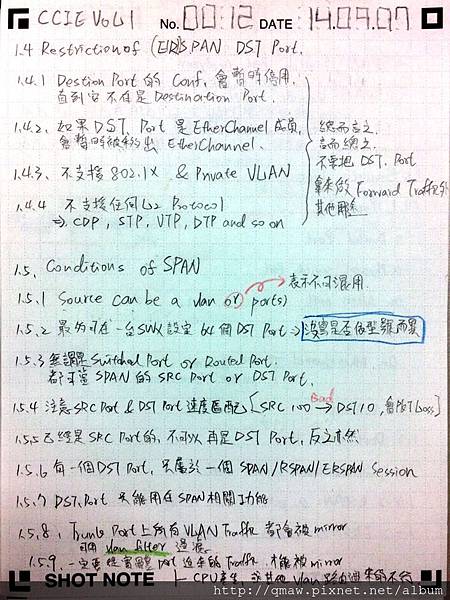 CCIE Vol.1 No. 00:12 DATE 14.09.07
1.4 Restriction of (E|R)SPAN DST Port.
1.4.1 Destion Port 的 Conf. 會暫時停用,
直到它不在是 Destination Port.
1.4.2. 如果 DST. Port 是 EtherChannel 成員,
會暫時被 出 EtherChannel.
1.4.3. 不支援 802.1X & Private VLAN
1.4.4 不支援任何 L2 Protocol
⇒ CDP, STP, VTP, DTP and so on
總而言之,
言而總之,
不要把 DST. Port
拿來做 Forward Traffic 外
其他用途
1.5. Conditions of SPAN
表示不可混用.
1.5.1 Source can be a vlan or ports)
1.5.2 最多可在一台SW設定 64 個 DST Port ⇒ 沒實是否依型號而異
1.5.3 無論是 Switched Port or Routed Port.
都可當 SPAN 的 SRC Port or DST Port.
1.5.4 注意 SRC Port & DST Port 速度匹配 [SRC 100 Bad → DST 10, 會 loss]
1.5.5 已經是 SRC Port 的, 不可以再是 DST Port, 反之亦然
1.5.6 每一個 DST Port, 只屬於一個 SPAN/RSPAN/ERSPAN Session
1.5.7 DST. Port 只能用在 SPAN 相關功能
1.5.8. Trunk Port 上所有 VLAN Traffic 都會被 mirror
可用 vlan filter 過濾.
1.5.9. 一定要是實體 Port 進來的 Traffic, 才能被 mirror
CPU產生, 或其他 vlan 路由過來的不行
SHOT NOTE
http://qmaw.pixnet.net/album